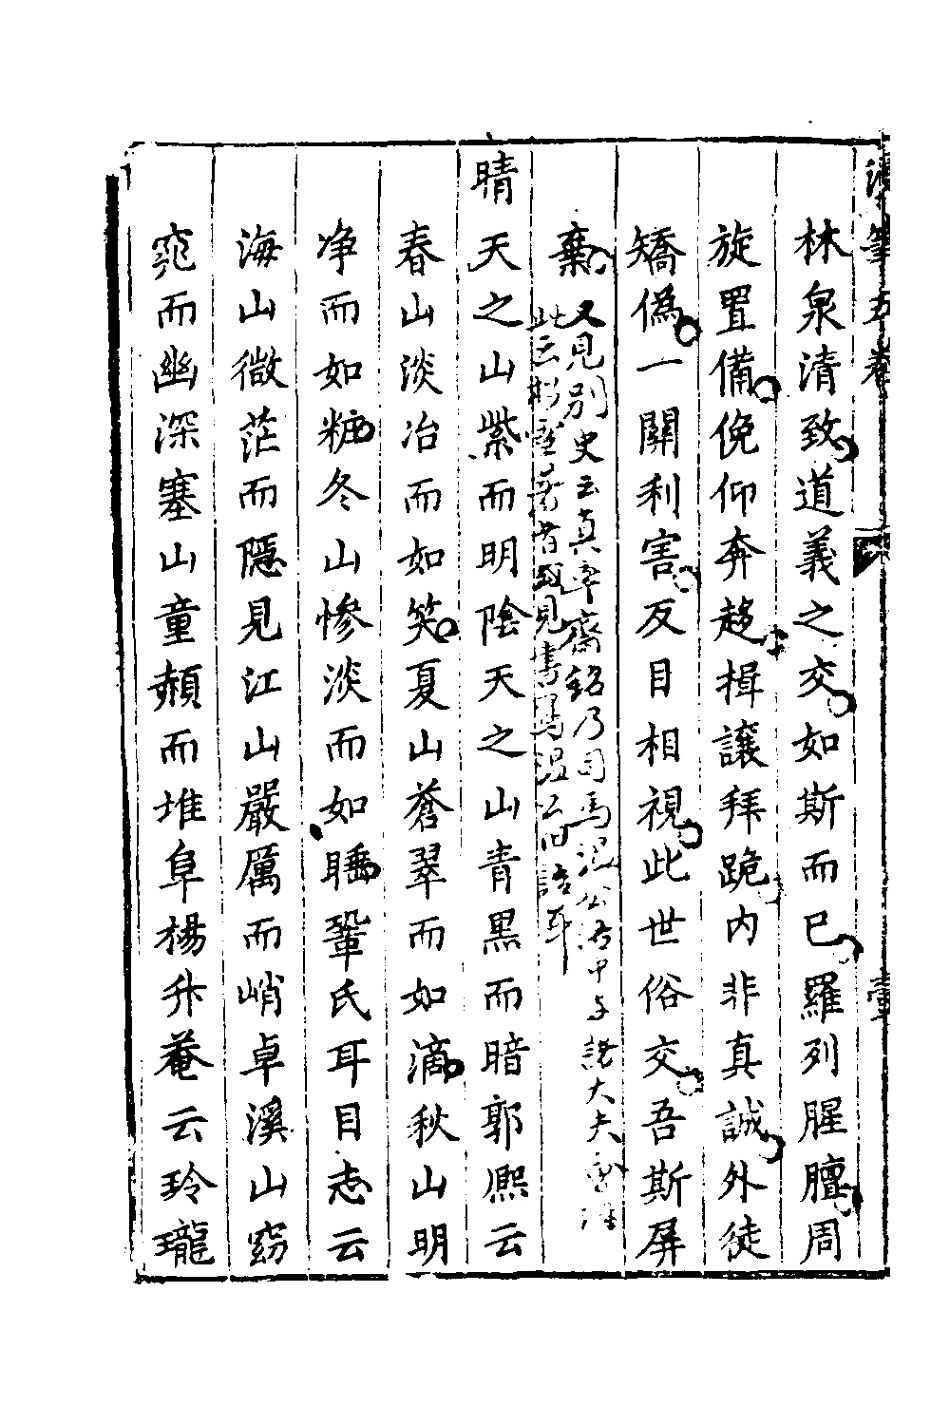 筆五卷
壹
林泉清致道義之交如斯而已羅列腥膻周
旋置備俛仰奔趨揖讓拜跪內非真誠外徒
矯偽一關利害反目相視此世俗交吾斯屏
棄
又見別史云真率齋銘乃司馬温公洛中與諸大夫
此云
晴天之山紫而明陰天之山青黑而暗郭熙云
春山淡冶而如笑夏山蒼翠而如滴秋山明
净而如糚冬山慘淡而如睡鞏氏耳目志云
海山微茫而隱見江山嚴厲而峭卓溪山窈
窕而幽深塞山童頳而堆阜楊升菴云玲瓏